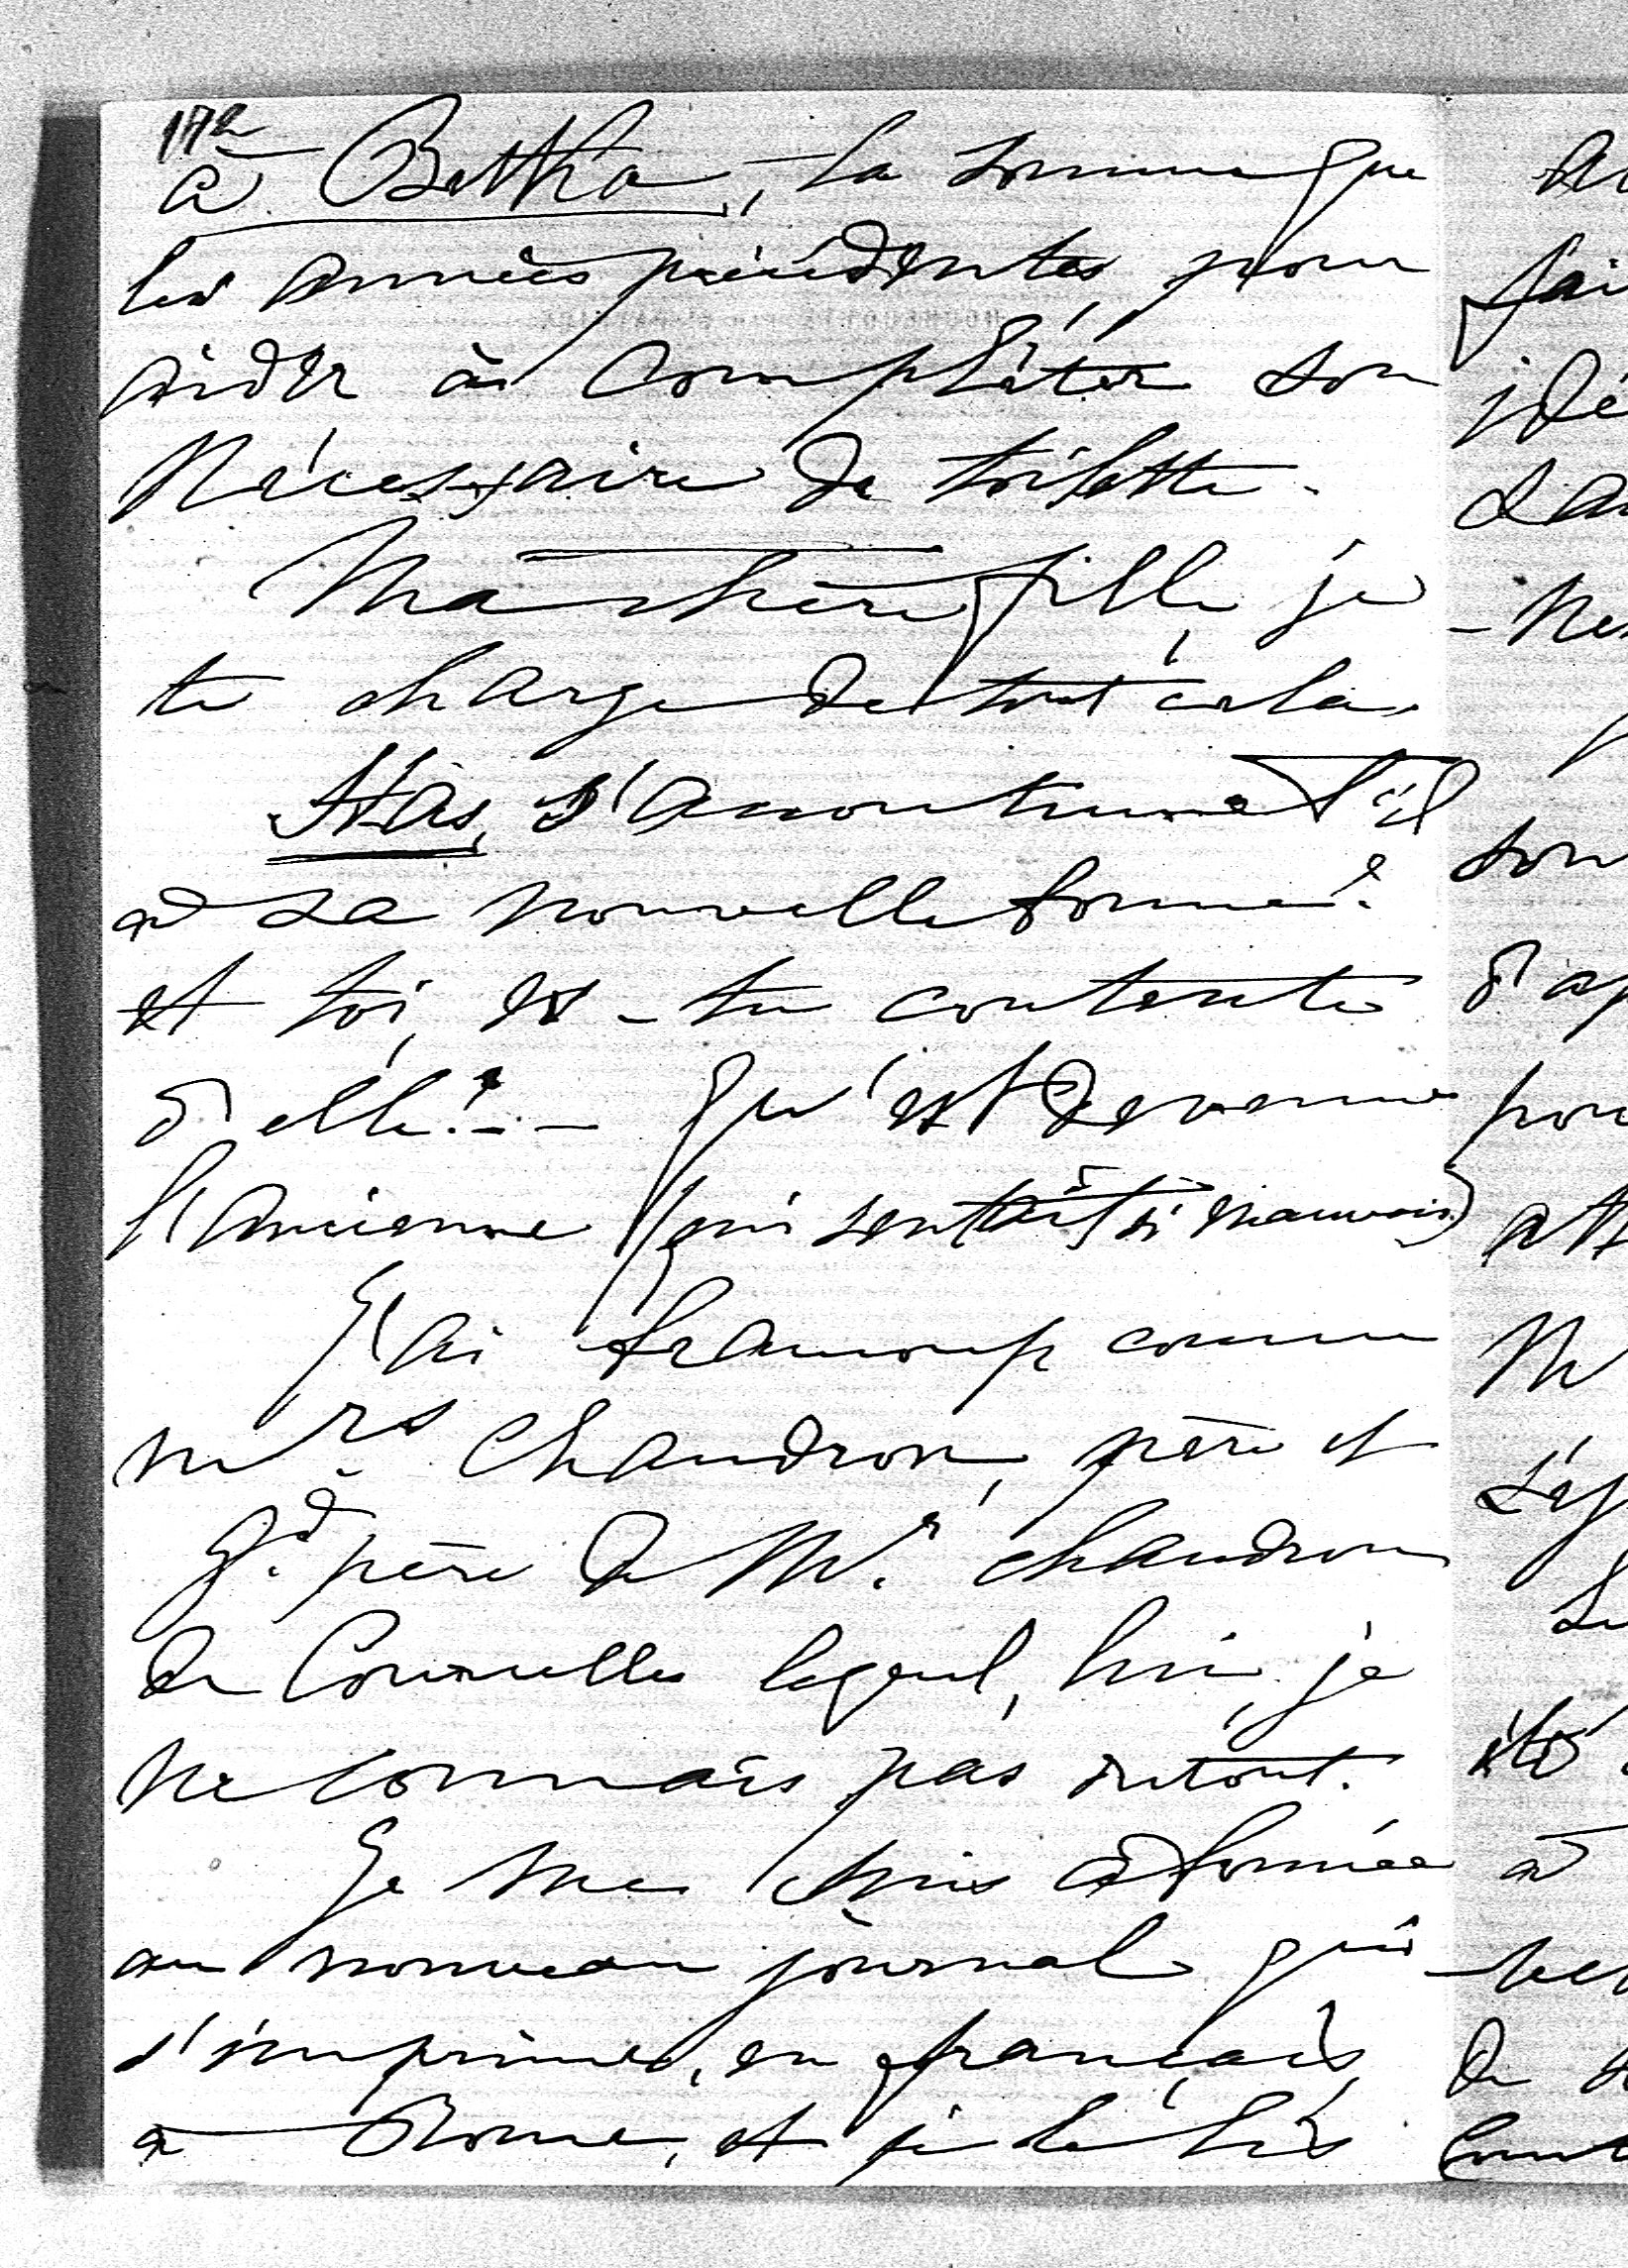 172
à Bertha, la somme que
les années précédentes, pour
aider à complêter son
nécessaire de toilette.
Ma chère fille, je
te charge de tout cela.
Stas, s'accoutume t'il
à sa nouvelle bonne?
et toi, es-tu contente
d'elle?.__ Qu'est devenue
l'ancienne (qui sentait si mauvais)
J'ai beaucoup connu
mrs Chaudron, père et
gd. père de Mr. chaudron
de Courcelles lequel, lui, je
ne connais pas du tout.
Je me suis abonnée
au nouveau journal qui
s'imprime, en français,
à Rome, et je le lis